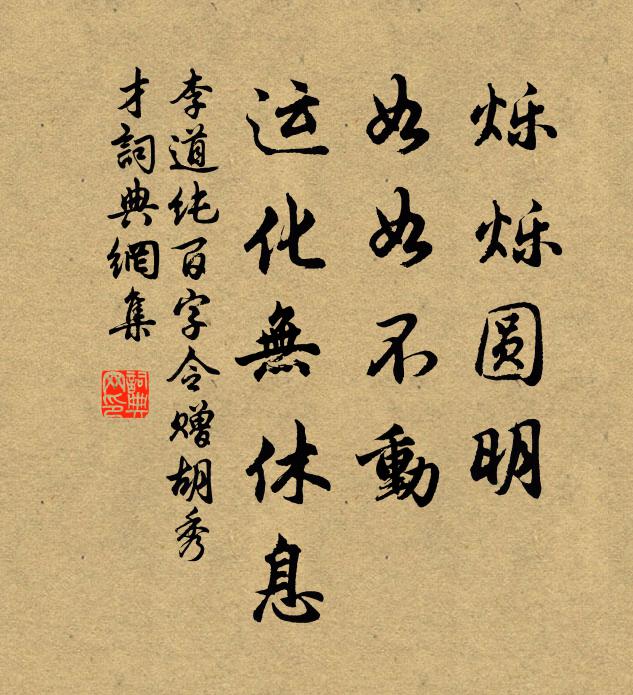 烁烁圆明
如如不動
运化無休息
李道纯百字令赠胡秀
才詞典網集
詞典
网印